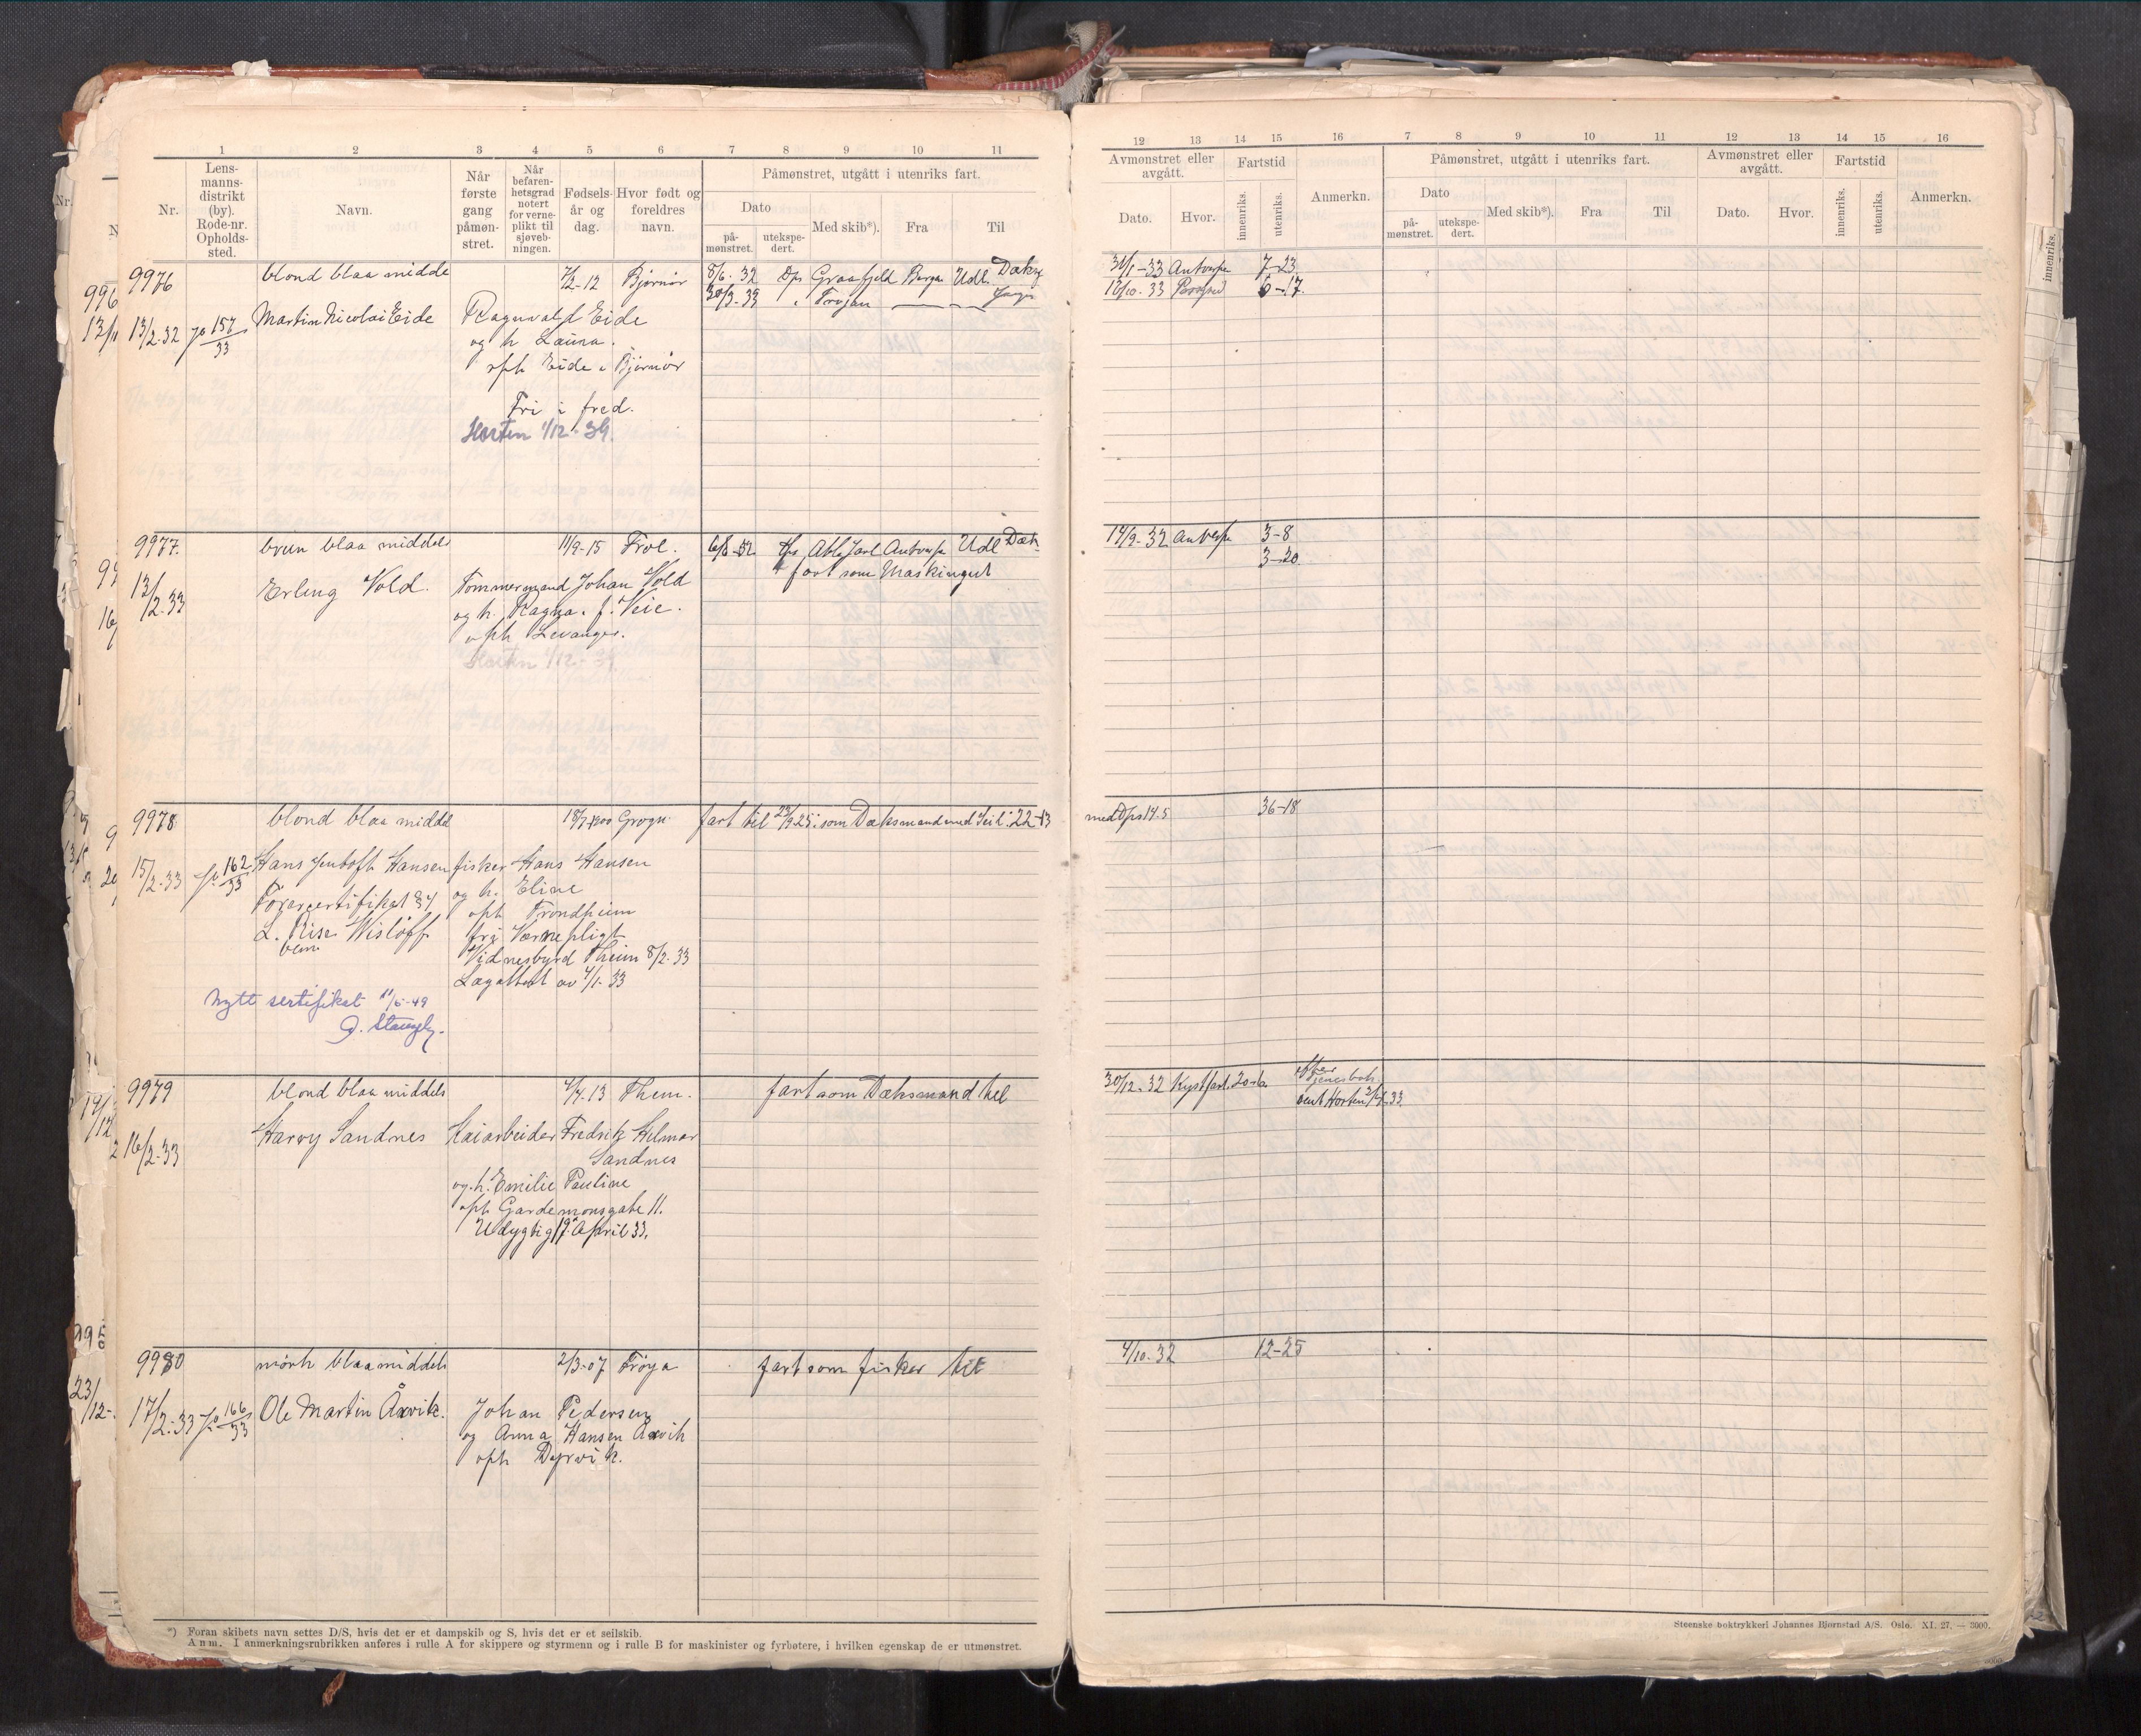 1 2 3 4 5 6 7 8 9 10 11
Nr.
Lens-
manns-
distrikt
(by).
Rode-nr.
Opholds-
sted.
Navn.
Når
første
gang
påmøn-
stret.
Når
befaren-
hetsgrad
notert
for verne-
plikt til
sjøveb-
ningen.
Fødsels-
år og
dag.
Hvor født og
foreldres
navn.
Påmønstret, utgått i utenriks fart.
Dato
på-
mønstret.
utekspe-
dert.
Med skib*).
Fra
Til
12 13 14 15 16 7 8 9 10 11 12 13 14 15 16
Avmønstret eller
avgått.
Dato.
Hvor.
Fartstid
innenriks.
utenriks.
Anmerkn.
Påmønstret, utgått i utenriks fart.
Dato
på-
mønstret.
utekspe-
dert.
Med skib*).
Fra
Til
Avmønstret eller
avgått.
Dato.
Hvor.
Fartstid
innenriks.
utenriks.
Anmerkn.
9976 blond blaa midde 12 Bjørnør 8/6. 32 Graafjeld Bergen Udl.
30/3-33 Trojan
13/2.32 157/33 Martin Nicolai Eide Ragnvald Eide
og h Laura.
oph Eide i Bjørnør
Fri i fred.
Horten 1/12-39.
31/1-33 Antverpn 7-23
12/10-33 6-17.
9977. brun blaa middels 11/9-15 Frol. 6/8-32 Jarl Antverpn Udl
fart som Maskingut
13/2.33 Erling Vold. Tømmermand Johan Vold
og h. Ragna. f. Veie.
oph Levanger.
14/9-32 Antverpn 3-8
3-20
9978 blond blaa middel 18/7-1900 fart til 23/9.25. som Dæksmand med Seil. 22-13
15/2-33 162/33 Hans Jentoft Hansen fisker Hans Hansen
Førercertifikat 84 og h. Eline
oph Trondheim
L. Riise Wisløff fri Vernepligt
Vidnesbyrd Theim 8/2-33
Lægattest av 4/1-33
Nytt sertifikat 11/5-49
med Dps 14.5 36-18
9979 blond blaa middels 4/4.13 Them. fart som Dæksmand til
16/2-33 Harry Sandnes Kaiarbeider Fredrik Hilmar
Sandnes
og. h. Emilie Pauline
oph Gardemonsgate 11.
Udygtig 19. April 33.
30/12-32 Kystfart. 20-6 efter
9980 mørk blaa middels 2/3-07 Frøya fart som fisker til
17/2-33 166/33 Ole Martin Åxvik. Johan Pedersen
og Anna Hansen Åxvik
oph Dyrvik.
4/10-32 12-25
*) Foran skibets navn settes D/S, hvis det er et dampskib og S, hvis det er et seilskib.
Anm. I anmerkningsrubrikken anføres i rulle A for skippere og styrmenn og i rulle B for maskinister og fyrbøtere, i hvilken egenskap de er utmønstret.
Steenske boktrykkeri Johannes Bjørnstad A/S. Oslo. XI. 27. — 3000.